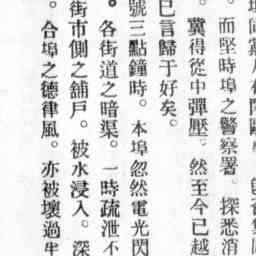 。而堅時埠之警察署。探悉消
。冀得從中彈壓。然至今已越
已言歸于好矣。
號三點鐘時。本埠忽然電光閃
。各街道之暗渠。一時疏泄不
街市側之舖戶。被水浸入。深
。合埠之德律風。亦被壞過半